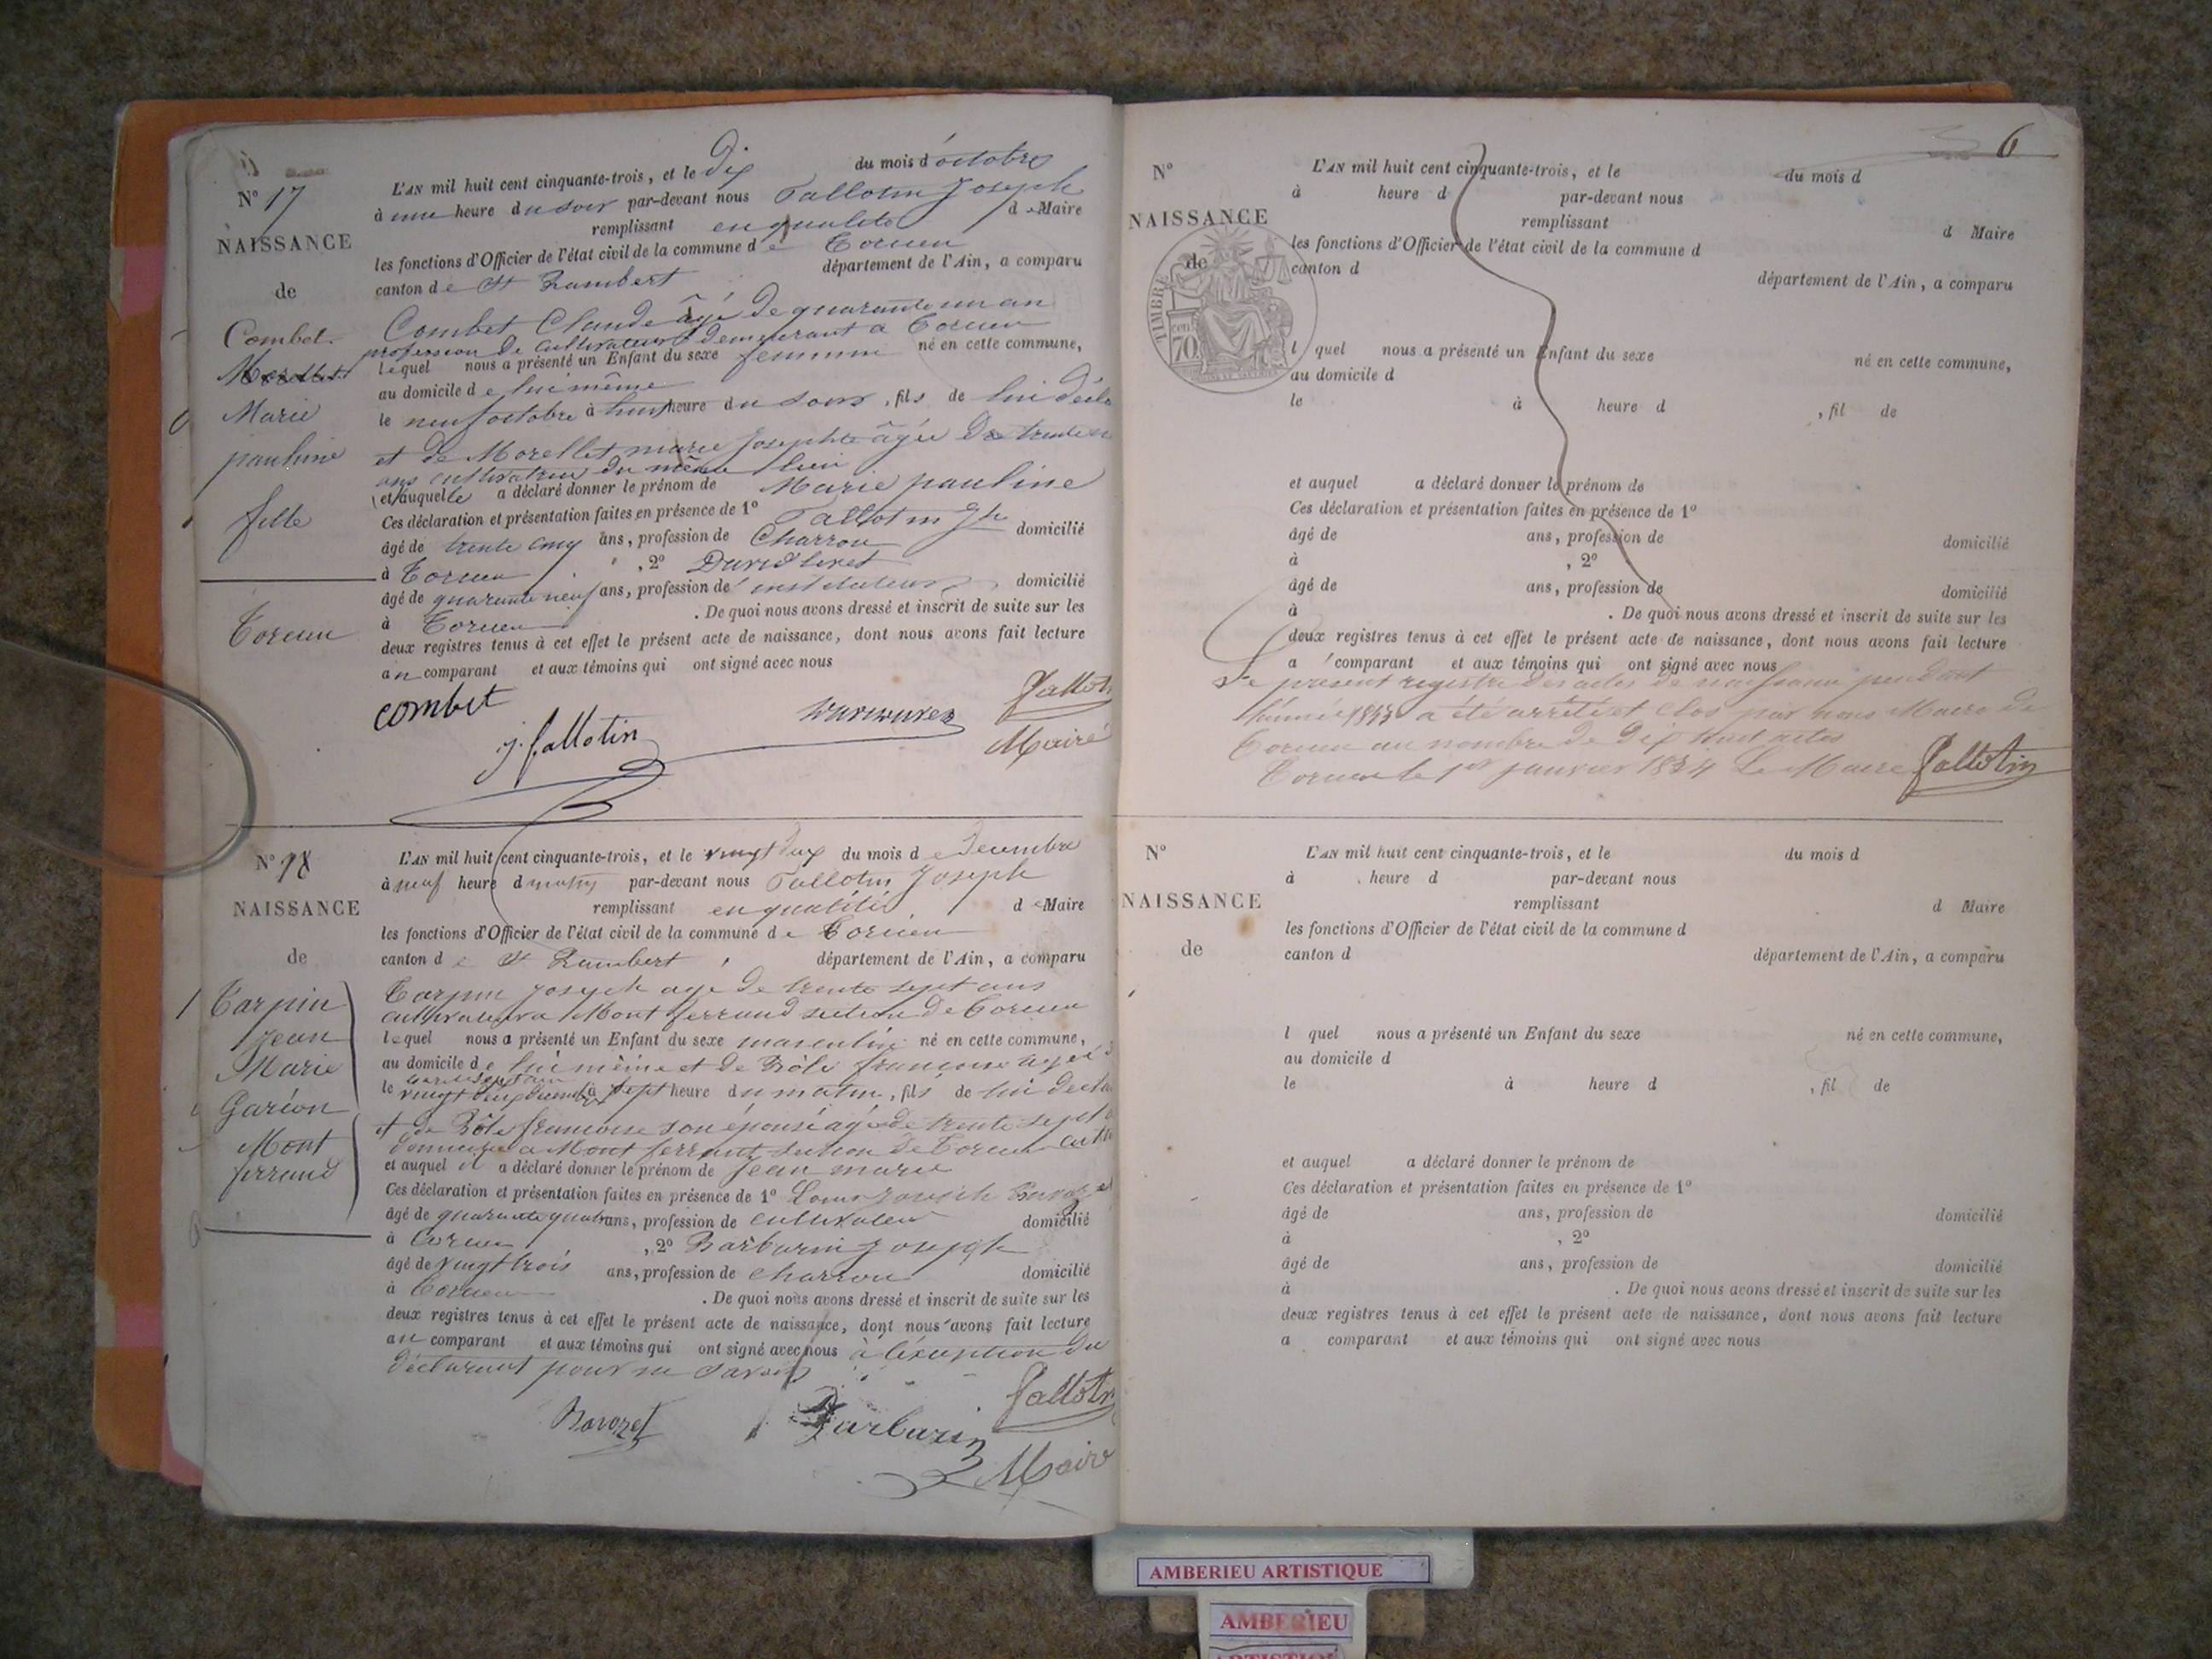 N° 17
NAISSANCE
de
Combet
Marie
pauline
fille
Torcieu
L'AN mil huit cent cinquante-trois, et le dix du mois d'octobre
à une heure du soir par-devant nous Tallotin Joseph
remplissant en qualité de Maire
les fonctions d'Officier de l'état civil de la commune de Torcieu
canton de St Rambert département de l'Ain, a comparu
Combet Claude âgé de quarante un an
profession de cultivateur demeurant à Torcieu
lequel nous a présenté un Enfant du sexe féminin né en cette commune,
au domicile de lui même
le neuf octobre à huit heure du soir, fils de lui décla
et de Morellet marie Josephte âgée de trente
ans cultivatrice du même lieu
et auquelle a déclaré donner le prénom de Marie pauline
Ces déclaration et présentation faites en présence de 1° Tallotin Jh
âgé de trente cinq ans, profession de Charron domicilié
à Torcieu, 2°
âgé de quarante neuf ans, profession de instituteur, domicilié
à Torcieu. De quoi nous avons dressé et inscrit de suite sur les
deux registres tenus à cet effet le présent acte de naissance, dont nous avons fait lecture
au comparant et aux témoins qui ont signé avec nous
combet
j. tallotin
Tallotin
Maire
N° 18
NAISSANCE
de
Tarpin
Jean
Marie
Garçon
Mont
ferrand
L'AN mil huit cent cinquante-trois, et le vingt deux du mois de Decembre
à neuf heure d matin par-devant nous Tallotin Joseph
remplissant en qualité de Maire
les fonctions d'Officier de l'état civil de la commune de Torcieu
canton de St Rambert département de l'Ain, a comparu
Tarpin Joseph age de trente sept ans
cultivateur a Mont ferrand section de Torcieu
lequel nous a présenté un Enfant du sexe masculin né en cette commune,
au domicile de lui même et de Bôle francoise agée
le vingt deux à sept heure du matin, fils de lui decla
et de Bôle francoise son épouse âgée de trente sept
a Mont ferrand section de Torcieu
et auquel il a déclaré donner le prénom de Jean marie
Ces déclaration et présentation faites en présence de 1° Louis Joseph Bavozet
âgé de quarante quatre ans, profession de cultivateur domicilié
à Torcieu, 2° Barbarin Joseph
âgé de vingt trois ans, profession de charron domicilié
à Torcieu. De quoi nous avons dressé et inscrit de suite sur les
deux registres tenus à cet effet le présent acte de naissance, dont nous avons fait lecture
au comparant et aux témoins qui ont signé avec nous à l'éxception du
déclarant pour ne savoir
Bavozet
Barbarin
Tallotin
Maire
6
N°
NAISSANCE
de
TIMBRE
70
L'AN mil huit cent cinquante-trois, et le du mois d
à heure d par-devant nous
remplissant d Maire
les fonctions d'Officier de l'état civil de la commune d
canton d département de l'Ain, a comparu
l quel nous a présenté un Enfant du sexe né en cette commune,
au domicile d
le à heure d , fil de
et auquel a déclaré donner le prénom de
Ces déclaration et présentation faites en présence de 1°
âgé de ans, profession de domicilié
à , 2°
âgé de ans, profession de domicilié
à . De quoi nous avons dressé et inscrit de suite sur les
deux registres tenus à cet effet le présent acte de naissance, dont nous avons fait lecture
a comparant et aux témoins qui ont signé avec nous
Le présent registre des actes de naissance pendant
l'année 1853 a été arrêté et clos par nous Maire de
Torcieu au nombre de dix huit actes
Torcieu le 1er janvier 1854 Le Maire Tallotin
N°
NAISSANCE
de
L'AN mil huit cent cinquante-trois, et le du mois d
à heure d par-devant nous
remplissant d Maire
les fonctions d'Officier de l'état civil de la commune d
canton d département de l'Ain, a comparu
l quel nous a présenté un Enfant du sexe né en cette commune,
au domicile d
le à heure d , fil de
et auquel a déclaré donner le prénom de
Ces déclaration et présentation faites en présence de 1°
âgé de ans, profession de domicilié
à , 2°
âgé de ans, profession de domicilié
à . De quoi nous avons dressé et inscrit de suite sur les
deux registres tenus à cet effet le présent acte de naissance, dont nous avons fait lecture
a comparant et aux témoins qui ont signé avec nous
AMBERIEU ARTISTIQUE
AMBERIEU
ARTISTIQUE